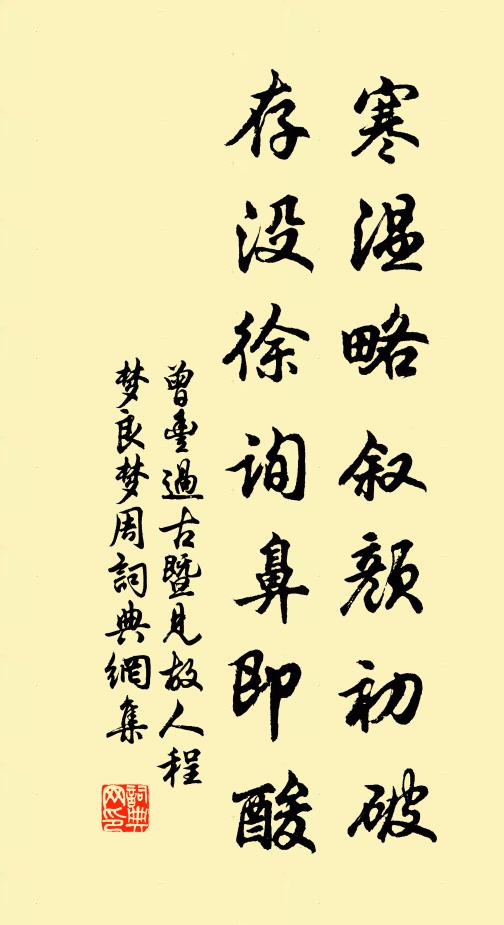 寒温略叙颜初破
存没徐询鼻即酸
曾豊過古暨見故人程
梦良梦周詞典網集
詞典
网印